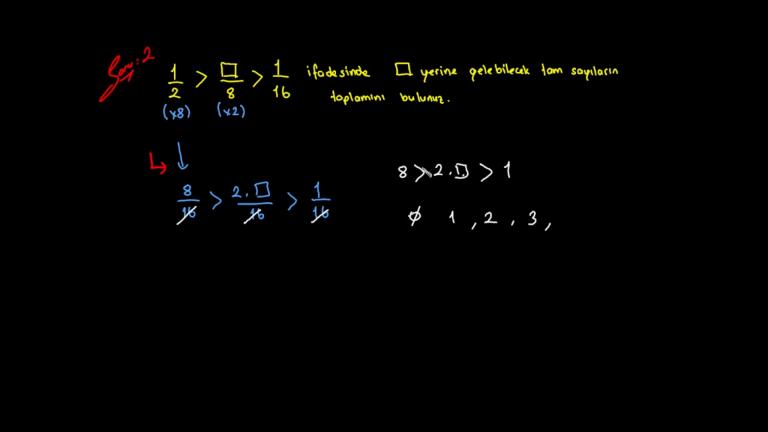 Soru: 2
1/2 > □/8 > 1/16 ifadesinde □ yerine gelebilecek tam sayıların
toplamını bulunuz.
(x8) (x2)
8/16 > 2.□/16 > 1/16
8 > 2.□ > 1
0 1 , 2 , 3 ,